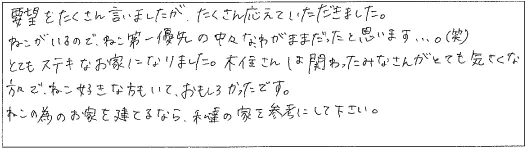 要望をたくさん言いましたが、たくさん応えていただきました。
ねこがいるので、ねこ第一優先の中々なわがままだったと思います…。(笑)
とてもステキなお家になりました。木住さんは関わったみなさんがとても気さくな
方々で、ねこ好きな方もいて、おもしろかったです。
ねこの為のお家を建てるなら、私達の家を参考にして下さい。